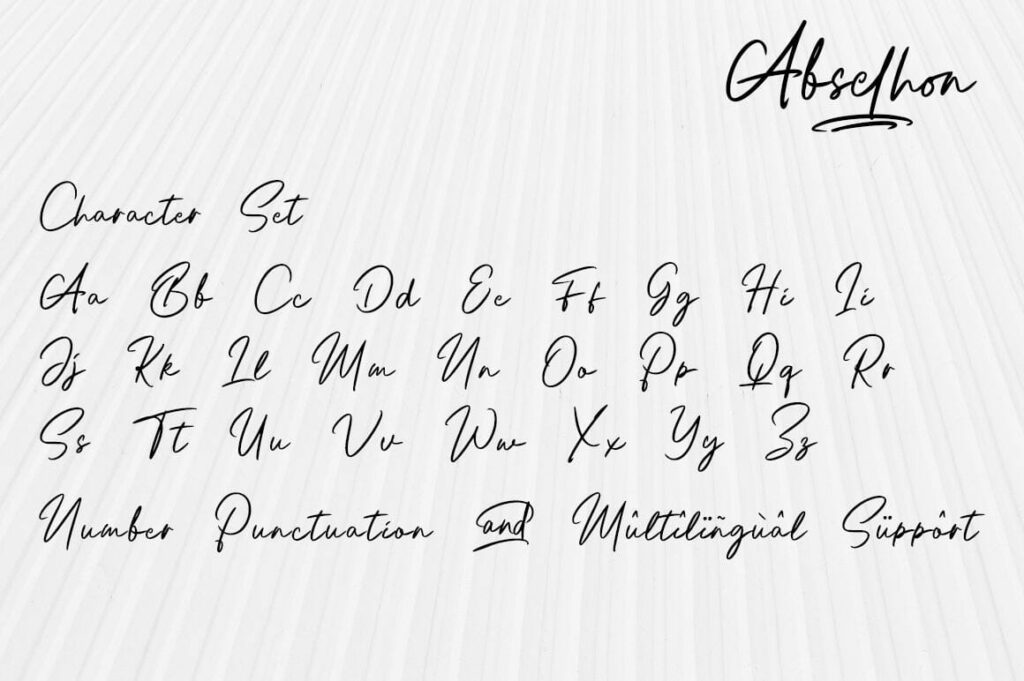 Abselhon
Character Set
Aa Bb Cc Dd Ee Ff Gg Hi Ii
Jj Kk Ll Mm Nn Oo Pp Qq Rr
Ss Tt Uu Vv Ww Xx Yy Zz
Number Punctuation and Mûltîlïñgùâl Süppôrt